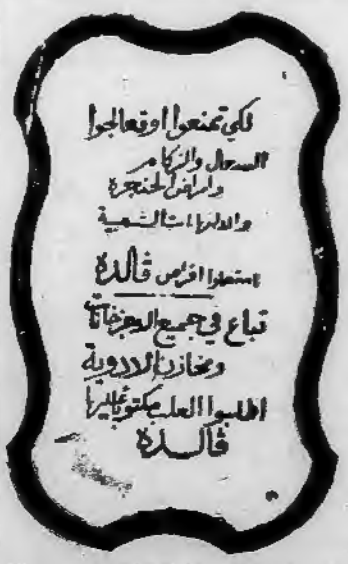 لكي تمنعوا او تعالجوا
السعال والزكام
وامراض الحنجرة
والالتهابات الشعبية
استعملوا اقراص ڤالدة
تباع في جميع الاجزخانات
ومخازن الادوية
اطلبوا العلب مكتوبا عليها
ڤالدة